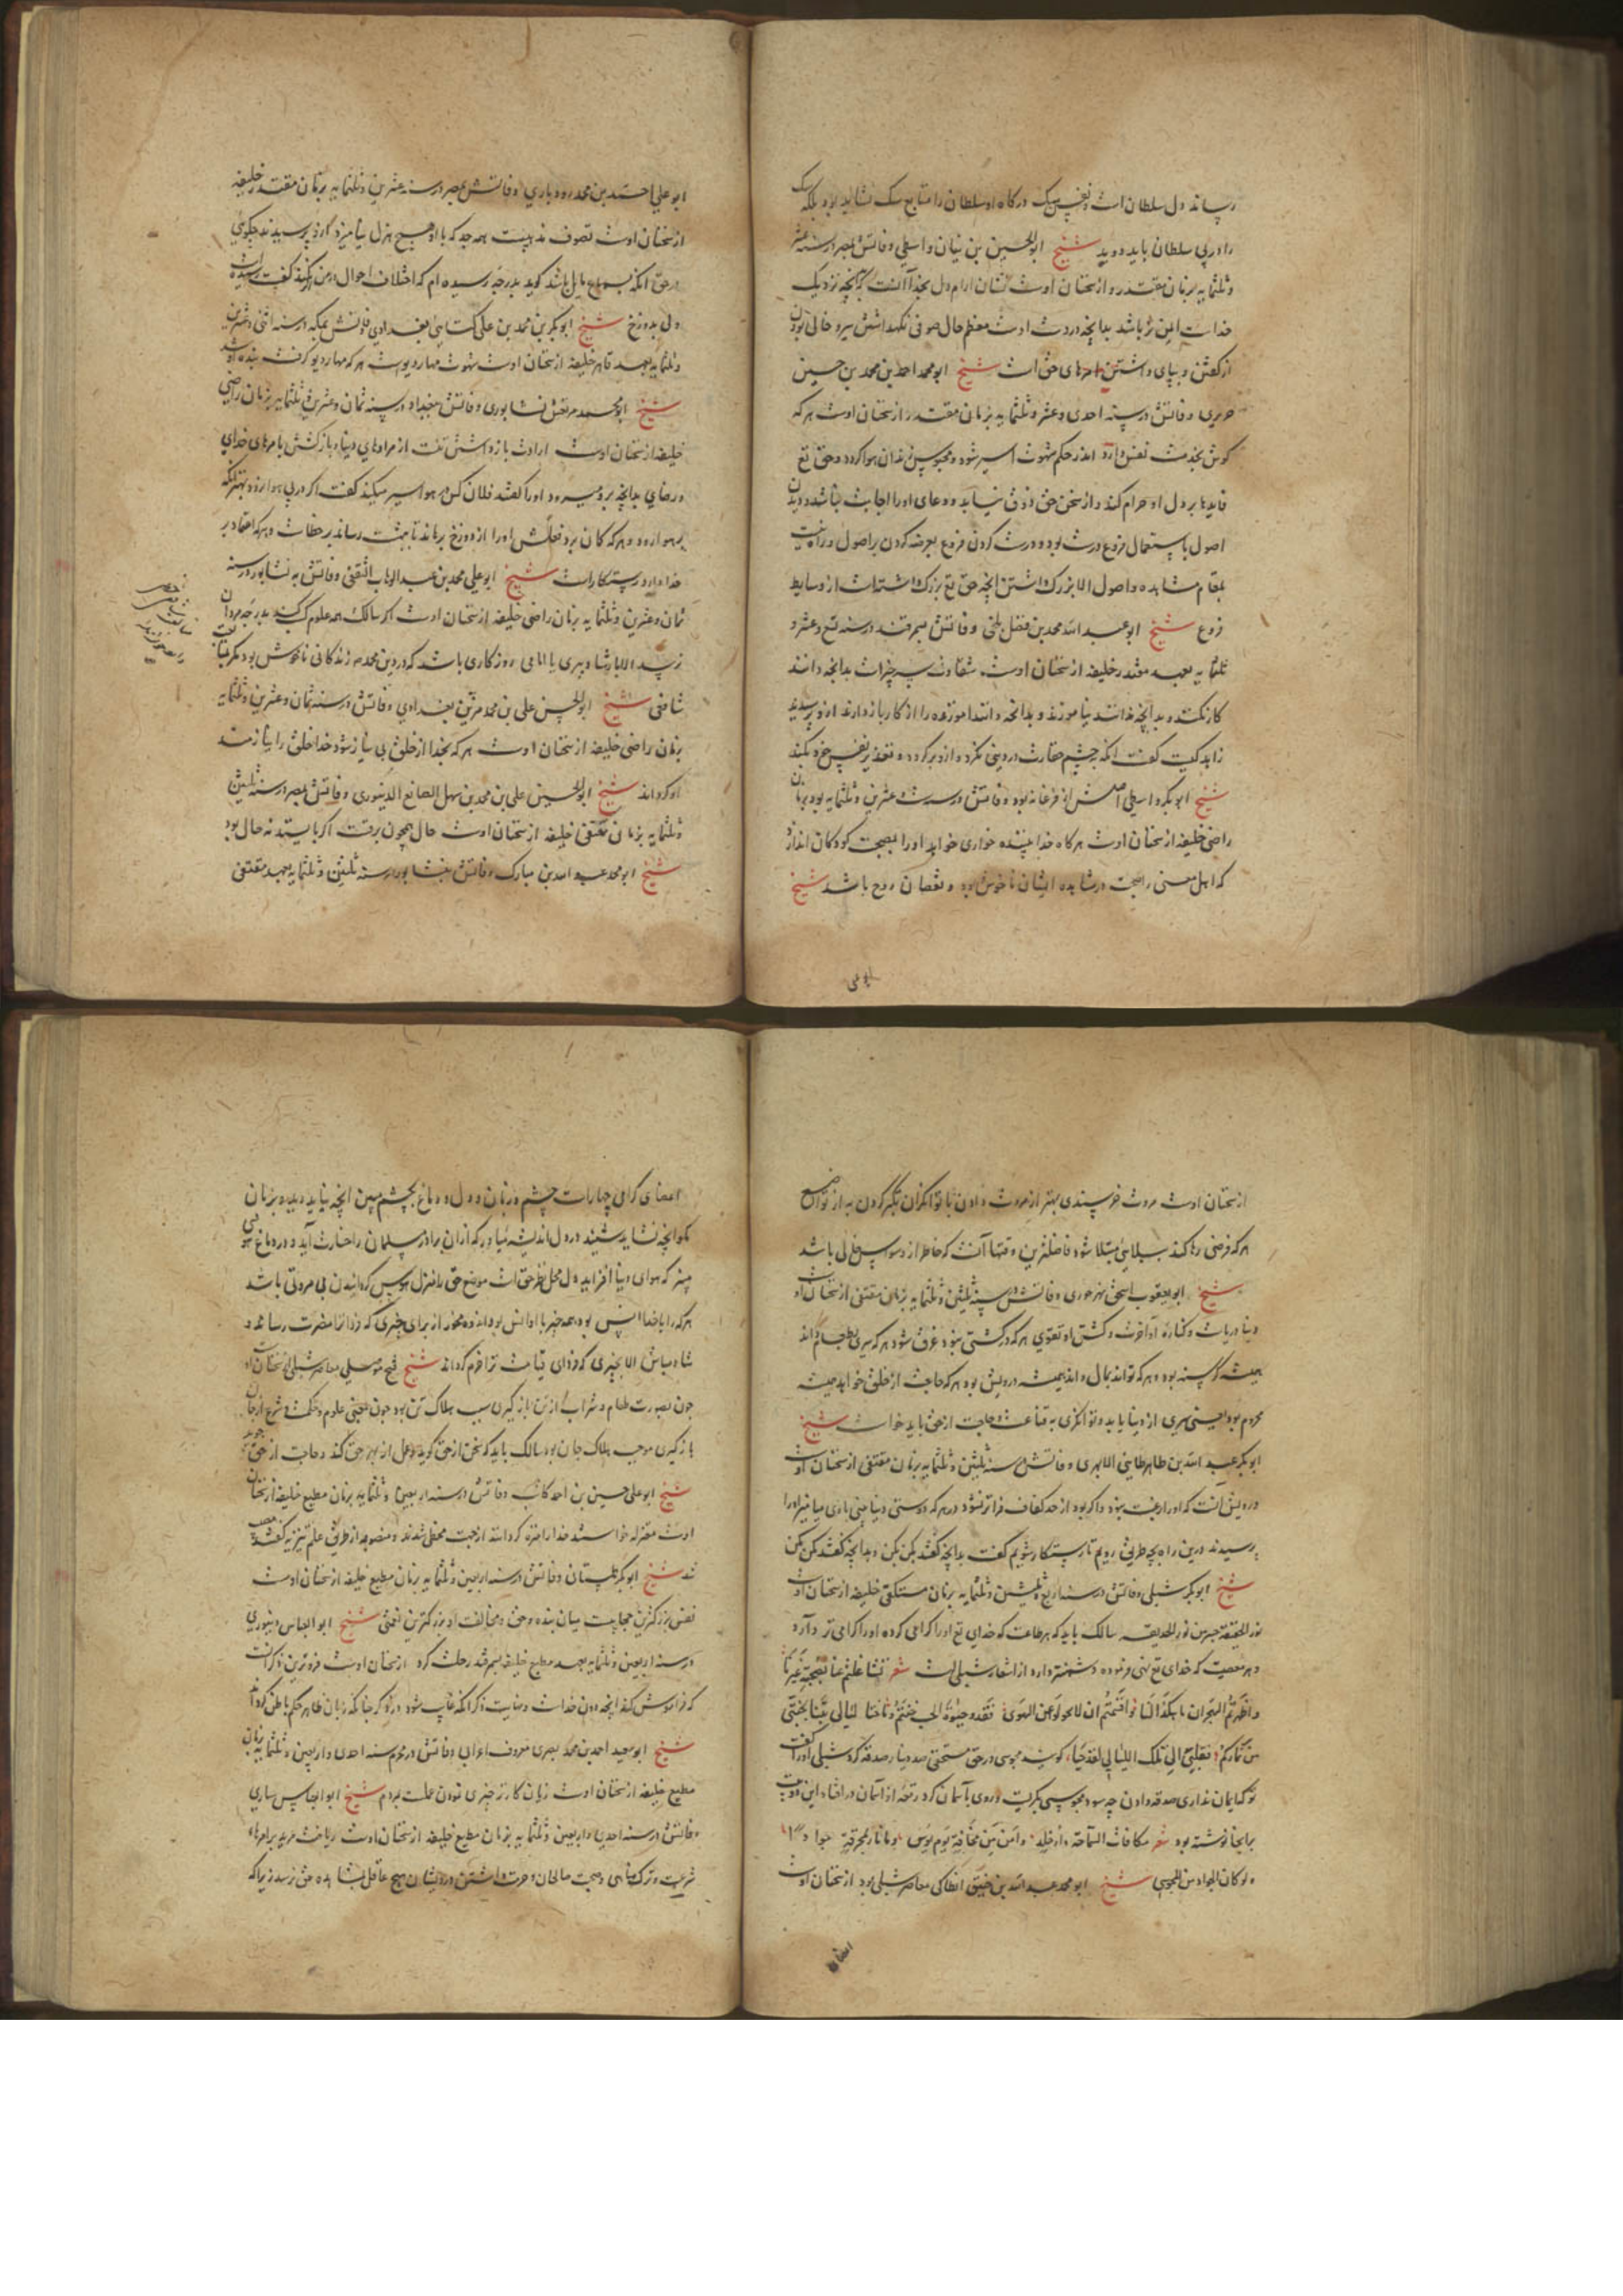 رساند دل سلطان است و نفس سگ درگاه او سلطان را متابع سگ نشاید بود بلکه سگ
را در پی سلطان باید دوید شیخ ابوالحسین بن بنان واسطی وفاتش بمصر در سنه عشر
و ثلثمایه بزمان مقتدر و از سخنان اوست نشان آرام دل بخدا آنست که بآنچه نزدیک
خداست ایمن تر باشد بدانچه در دست اوست معظم حال صوفی نگهداشتن سر و خالی بودن
از گفتن و بپای داشتن امرهای حق است شیخ ابو محمد احمد بن محمد بن حسین
حریری وفاتش در سنه احدی و عشر و ثلثمایه بزمان مقتدر از سخنان اوست هرکه
گوش بخدمت نفس دارد اندر حکم شهوت اسیر شود و محبوس زندان هوا گردد و حق تع
فایدها بر دل او حرام کند و از سخن حق ذوق نیابد و دعای او را اجابت نباشد و دیدن
اصول باستعمال فروع درست بود و درست کردن فروع بعرضه کردن بر اصول و راه نیست
بمقام مشاهده و اصول الا بزرگ داشتن آنچه حق تع بزرگ داشته است از وسایط
فروع شیخ ابو عبد الله محمد بن فضل بلخی وفاتش بسمرقند در سنه تسع و عشر و
ثلثمایه بعهد مقتدر خلیفه از سخنان اوست شقاوت سه چیز است بدانچه دانند
کار نکنند و بدانچه ندانند نیاموزند و بدانچه دانند آموزنده را از کار باز دارند ازو پرسیدند
زاهد کیست گفت آنکه بچشم حقارت در دینی نگرد و ازو برگردد و نفس خرد نکند
شیخ ابو بکر واسطی اصلش از فرغانه بود وفاتش در سنه عشرین و ثلثمایه بود بزمان
راضی خلیفه از سخنان اوست هرگاه خدا ببنده خواری خواهد او را بصحبت کودکان اندازد
که اهل معنی را صحبت و مشاهده ایشان ناخوش بود و نقصان روح باشد شیخ
ابو علی
ابو علی احمد بن محمد رودباری وفاتش بمصر در سنه عشرین و ثلثمایه بزمان مقتدر خلیفه
از سخنان اوست تصوف مذهبیست همه جد که با او هیچ هزل نیامیزد و ازو پرسیدند چگویی
در حق آنکه بسماع مایل باشد گوید بدرجه رسیده ام که اختلاف احوال در من اثر نکند گفت رسیده است
ولی بدوزخ شیخ ابو بکر بن محمد بن علی کتانی بغدادی وفاتش بمکه در سنه اثنی و عشرین
و ثلثمایه بعهد قاهر خلیفه از سخنان اوست شهوت مهار دیو است هرکه مهار دیو گرفت بنده او شد
شیخ ابو محمد مرتعش نشابوری وفاتش ببغداد در سنه ثمان و عشرین و ثلثمایه بزمان راضی
خلیفه از سخنان اوست ارادت باز داشتن تنست از مرادهای دنیا و بازگشتن بامرهای خدای
و رضای بدانچه برو میرود او را گفتند فلان کس بر هوا سیر میکند گفت اگر در پی هوا نرود بهتر از آنکه
بر هوا رود و هرکه گمان برد فعلش او را از دوزخ برهاند تا ببهشت رساند بر خطاست و هرکه اعتماد بر
خدا دارد رستگار است شیخ ابو علی محمد بن عبد الوهاب الثقفی وفاتش به نشابور در سنه
ثمان و عشرین و ثلثمایه بزمان راضی خلیفه از سخنان اوست اگر سالک همه علوم کسب کند بدرجه مردان
نرسد الا بارشاد پیری یا امامی روزگاری باشد که در دین محمد م زندگانی ناخوش بود مگر بمتابعت
شافعی شیخ ابو الحسن علی بن محمد مزین بغدادی وفاتش در سنه ثمان و عشرین و ثلثمایه
بزمان راضی خلیفه از سخنان اوست هرکه بخدا از خلق بی نیاز شود خدا خلق را نیازمند
او گرداند شیخ ابو الحسن علی بن محمد بن سهل الصانع الدینوری وفاتش بمصر در سنه ثلثین
و ثلثمایه بزمان متقی خلیفه از سخنان اوست حال همچون برقست اگر بایستد نه حال بود
شیخ ابو محمد عبد الله بن مبارک وفاتش بنشابور در سنه ثلثین و ثلثمایه بعهد متقی
از سخنان اوست مروت خرسندی بهتر از مروت دادن با توانگران تکبر کردن به از تواضع
هرکه فرضی رها کند ببلایی مبتلا شود فاضلترین وقتها آنست که خاطر از وسواس خالی باشد
شیخ ابو یعقوب اسحق نهرجوری وفاتش در سنه ثلثین و ثلثمایه بزمان متقی از سخنان اوست
دنیا دریاست و کناره آن آخرت و کشتی او تقوی هرکه در کشتی نبود غرق شود هرکه سیری بطعام داند
همیشه گرسنه بود و هرکه توانگری بمال داند همیشه درویش بود هرکه حاجت از خلق خواهد همیشه
محروم بود یعنی سیری از دنیا باید و توانگری به قناعت و حاجت از حق باید خواست شیخ
ابو بکر عبد الله بن طاهر طایی الابهری وفاتش در سنه ثلثین و ثلثمایه بزمان متقی از سخنان اوست
درویش آنست که او را رغبت نبود و اگر بود از حد کفاف فراتر نشود و هرکه دوستی دنیا
پرسیدند درین راه بچه طریق رویم تا رستگار شویم گفت بدانچه گفتند بکن بکن و بدانچه گفتند مکن مکن
شیخ ابو بکر شبلی وفاتش در سنه اربع ثلثین و ثلثمایه بزمان مستکفی خلیفه از سخنان اوست
سالک باید که هر طاعت که خدای تع او را گرامی کرده او را گرامی تر دارد
و هر معصیت که خدای تع نهی فرموده دشمنتر دارد از اشعار شبلی است شعر
گویند مجوسی در حق مستحقی صد دینار صدقه کرد شبلی او را گفت
تو که ایمان نداری صدقه دادن چه سود مجوسی بگریست و روی بآسمان کرد رقعه از آسمان در افتاد این دو بیت
بر آنجا نوشته بود شعر مکافات السماحة دار خلد و امن من مخافة یوم بوس و ما نار بمحرقة جوادا
و لو کان الجواد من المجوس شیخ ابو محمد عبد الله بن خبیق انطاکی معاصر شبلی بود از سخنان اوست
اعضا
اعضای گرامی چهار است چشم و زبان و دل و دماغ بچشم مبین آنچه نباید دید و بزبان
مگو آنچه نشاید شنید و در دل اندیشه میاور که از آن برادر مسلمان را خسارت آید و در دماغ
مپز که هوای دنیا افزاید دل محل نظر حق است موضع حق را منزل هوس گردانیدن بی مروتی باشد
هرکه را با خدا انس بود همه چیز با او انس بود اندوه مخور از برای چیزی که فردا ترا مضرت رساند و
شاد مباش الا بچیزی که فردای قیامت ترا خرم گرداند شیخ فتح موصلی معاصر شبلی از سخنان اوست
چون بصورت طعام و شراب از تن بازگیری سبب هلاک تن بود چون بمعنی علوم و حکمت و شرع از جان
بازگیری موجب هلاک جان بود سالک باید که سخن از حق گوید و عمل از بهر حق کند و حاجت از حق جوید
شیخ ابو علی حسین بن احمد کاتب وفاتش در سنه اربعین و ثلثمایه بزمان مطیع خلیفه از سخنان
اوست معتزله خواستند خدا را منزه گردانند از جهت عقل شدند و متصوفه از طریق علم تنزیه گفتند مصیب
شد شیخ ابو بکر تمستان وفاتش در سنه اربعین و ثلثمایه بزمان مطیع خلیفه از سخنان اوست
نفس بزرگترین حجابیست میان بنده و حق و مخالفت او بزرگترین نعمتی شیخ ابو العباس دینوری
در سنه اربعین و ثلثمایه بعهد مطیع خلیفه بسمرقند رحلت کرد از سخنان اوست فروترین ذکر آنست
که فراموش کند آنچه دون خداست و نهایت ذکر آنکه غایب شود در ذکر چنانکه زبان ظاهر حکم باطن گرداند
شیخ ابو سعید احمد بن محمد بصری معروف اعرابی وفاتش در محرم سنه احدی و اربعین و ثلثمایه بزمان
مطیع خلیفه از سخنان اوست زیان کارتر چیزی نمودن عملست بمردم شیخ ابو العباس سیاری
وفاتش در سنه احدی و اربعین و ثلثمایه بزمان مطیع خلیفه از سخنان اوست ریاضت مرید بر امرها
شریعت و ترک مناهی و صحبت صالحان و حرمت داشتن درویشان هیچ عاقل بمشاهده حق نرسد زیرا که